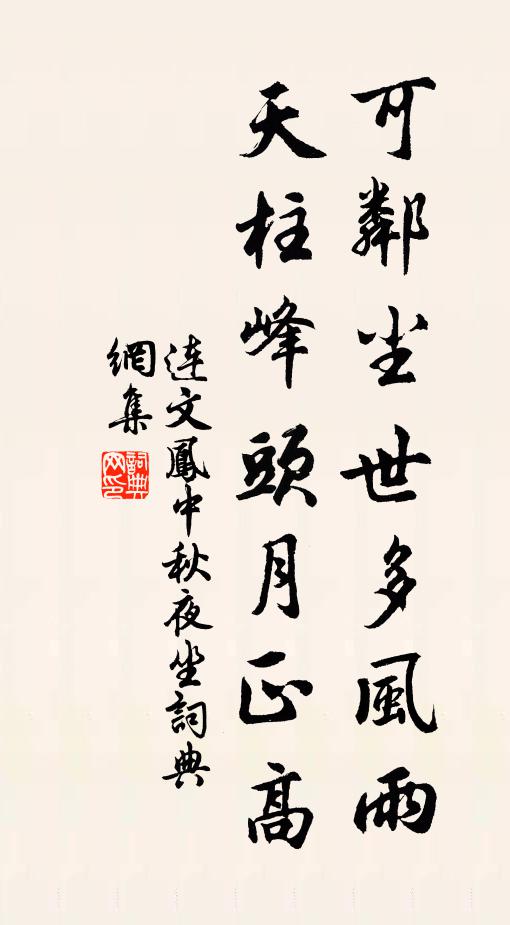 可鄰尘世多風雨
天柱峰頭月正高
連文鳳中秋夜坐詞典
網集
詞典網印